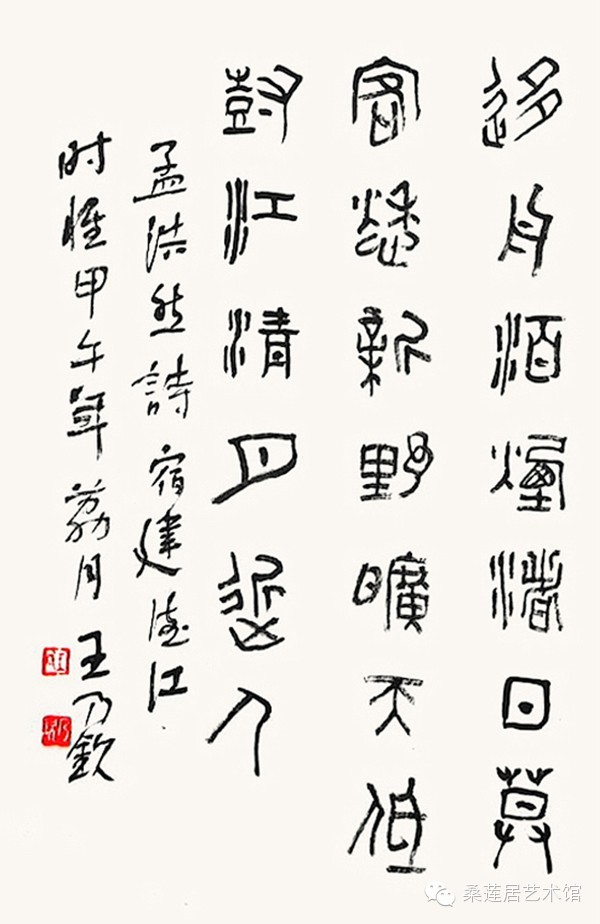 迻舟泊煙渚日莫
客愁新野曠天低
尌江清月近人
孟浩然詩宿建德江
时惟甲午年荔月王乃欽
桑莲居艺术馆